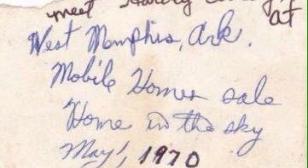 meet at
West Memphis, Ark.
Mobile Homes sale
Home in the sky
May, 1970